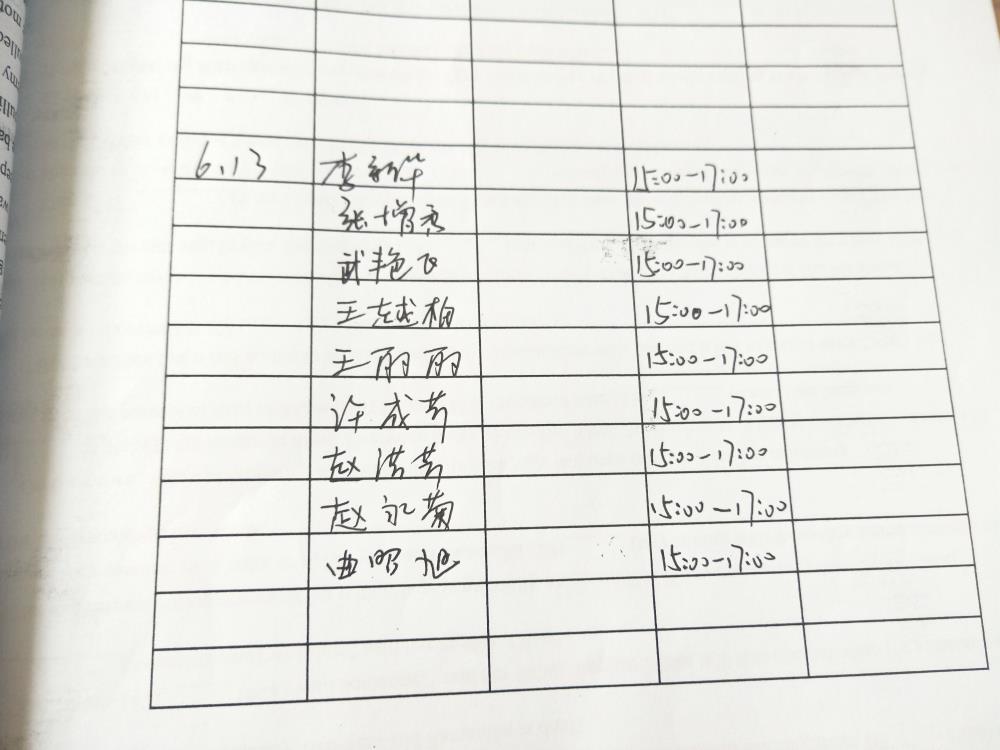 6.13 李新华 15:00-17:00
张增秀 15:00-17:00
武艳飞 15:00-17:00
王越柏 15:00-17:00
王丽丽 15:00-17:00
许成芳 15:00-17:00
赵洪芳 15:00-17:00
赵永菊 15:00-17:00
曲明旭 15:00-17:00